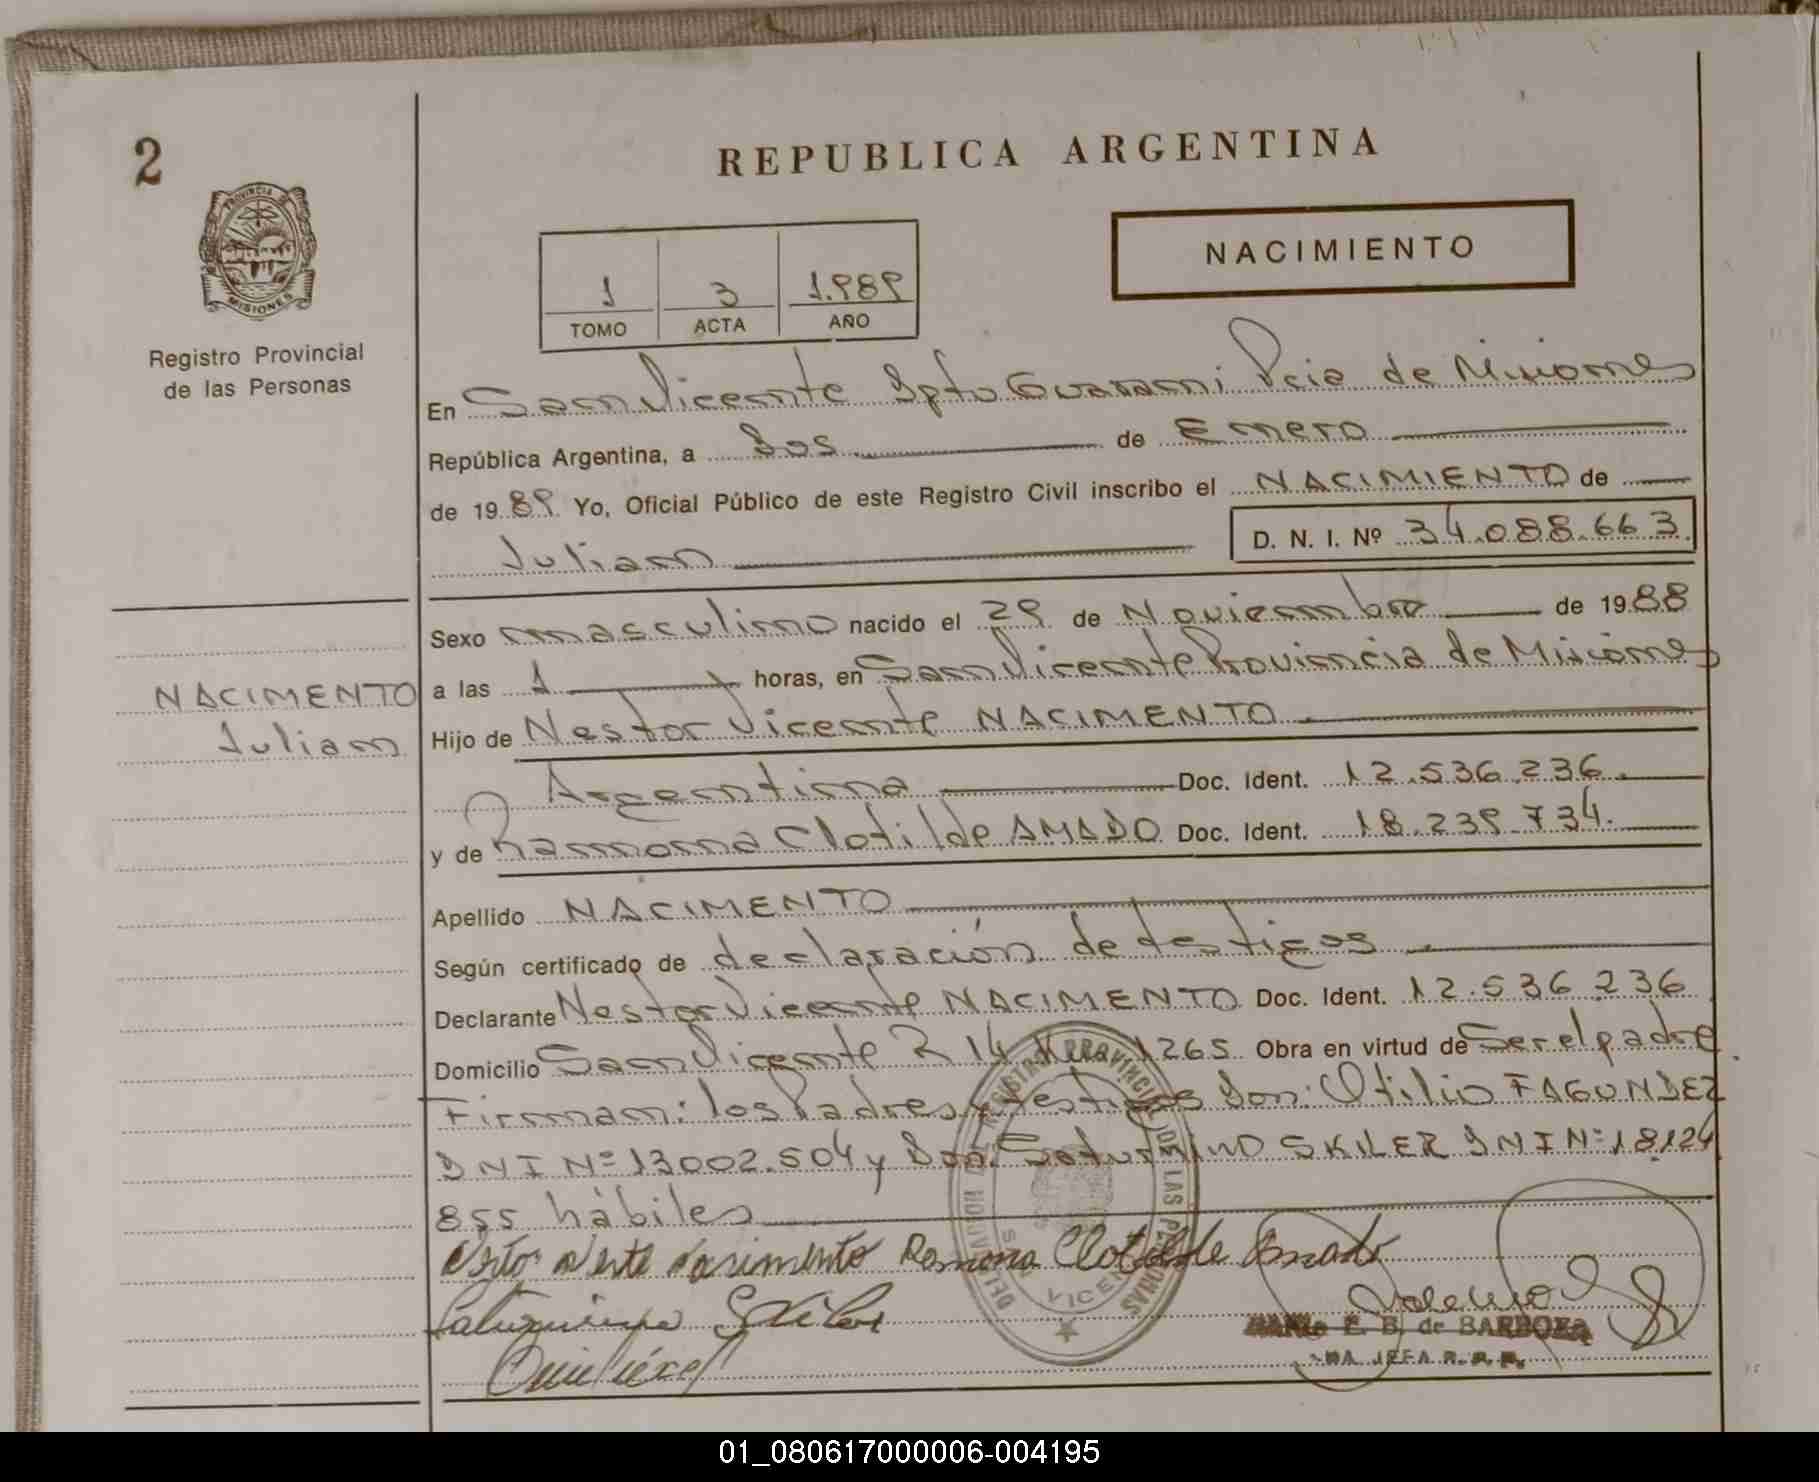 2
PROVINCIA DE
MISIONES
Registro Provincial
de las Personas
REPUBLICA ARGENTINA
NACIMIENTO
1 3 1.989
TOMO ACTA AÑO
En San Vicente Dpto Guarani Pcia de Misiones
República Argentina, a Dos de Enero
de 1989 Yo, Oficial Público de este Registro Civil inscribo el NACIMIENTO de
Julian D. N. I. Nº 34.088.663.
Sexo masculino nacido el 29 de Noviembre de 1988
NACIMENTO
Julian
a las 1 horas, en San Vicente Provincia de Misiones
Hijo de Nestor Vicente NACIMENTO
Argentina Doc. Ident. 12.536.236.
y de Ramona Clotilde AMADO Doc. Ident. 18.239.734.
Apellido NACIMENTO
Según certificado de declaración de testigos
Declarante Nestor Vicente NACIMENTO Doc. Ident. 12.536.236
Domicilio San Vicente R 14 Km 1265 Obra en virtud de Ser el padre.
Firman: los Padres y testigos Don: Otilio FAGUNDEZ
DNI Nº 13002.504 y Don. Saturnino SKILER DNI Nº 18.124
855 hábiles
Ramona Clotilde Amado
E. B. de BARBOZA
JEFA R.P.P.
01_080617000006-004195